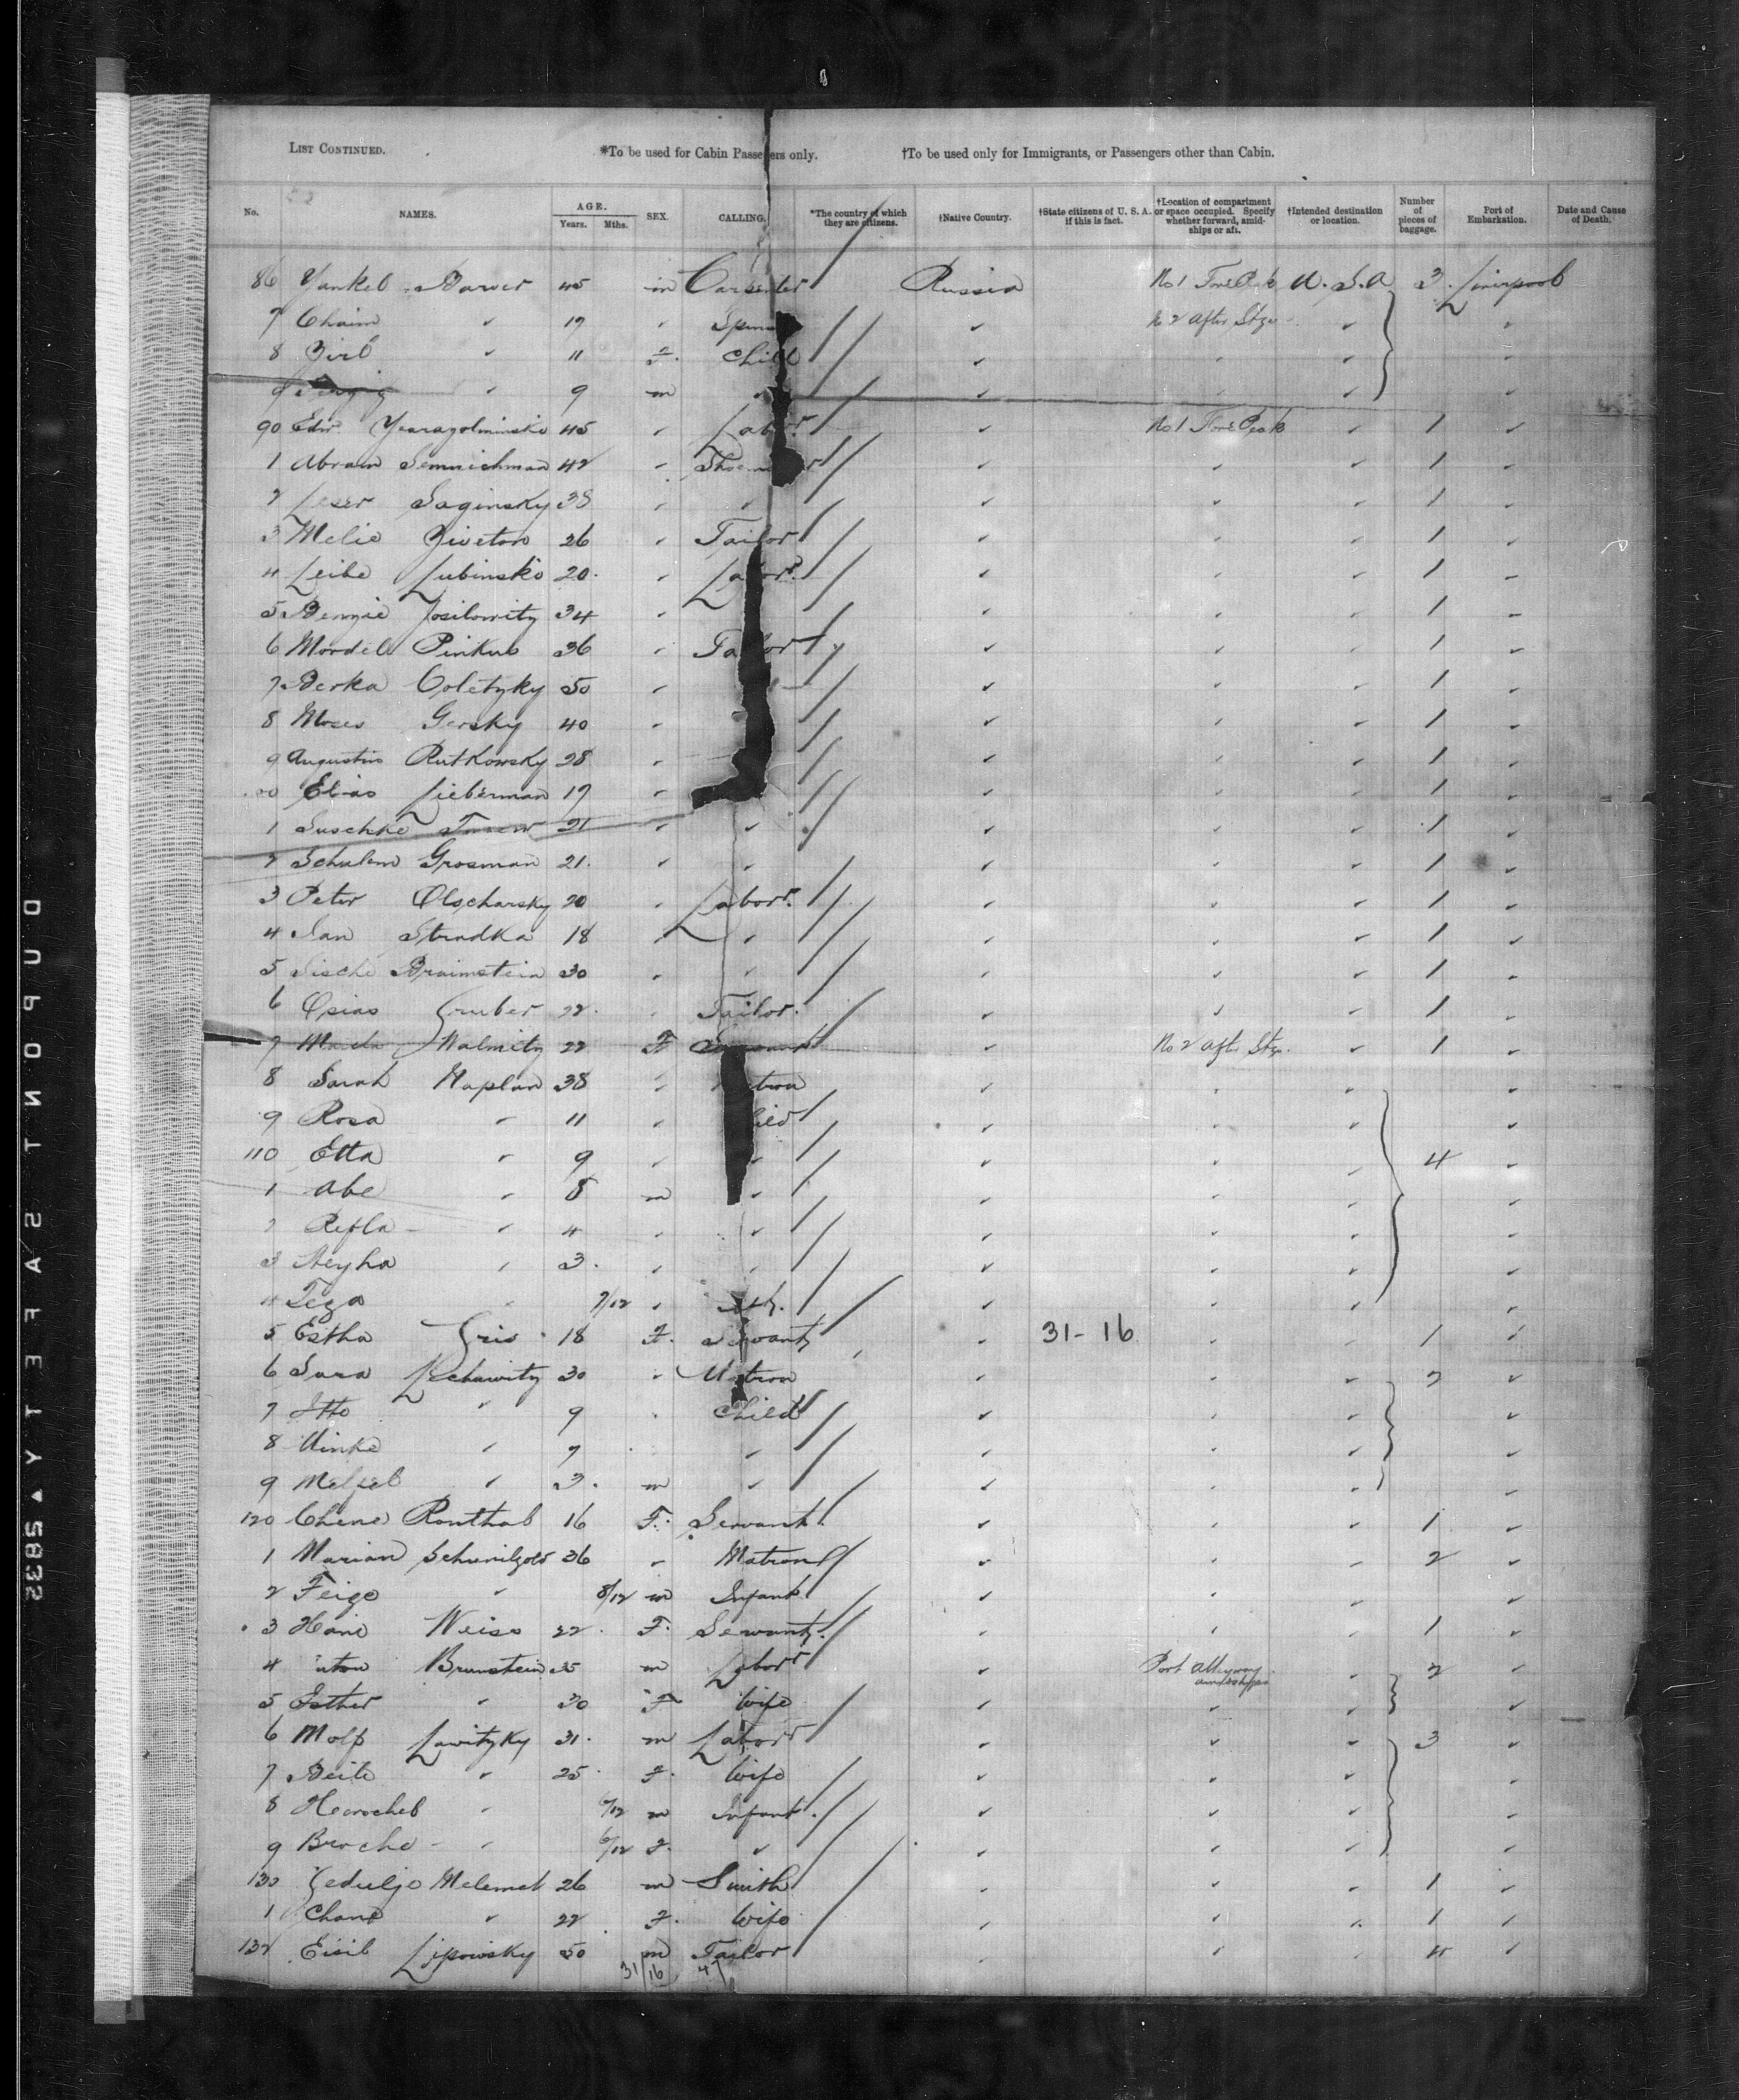 LIST CONTINUED. *To be used for Cabin Passengers only. †To be used only for Immigrants, or Passengers other than Cabin.
No. NAMES. AGE. Years. Mths. SEX. CALLING. *The country of which they are citizens. †Native Country. †State citizens of U. S. A. if this is fact. †Location of compartment or space occupied. Specify whether forward, amidships or aft. †Intended destination or location. Number of pieces of baggage. Port of Embarkation. Date and Cause of Death.
86 Yankel 45 m Carpenter Russia No 1 Fore Peak U. S. A 3 Liverpool
7 Chaim " 19 " ✓ No 2 after Stge ✓ ✓
8 " 11 F. Child ✓ ✓ ✓ ✓
9 " 9 m " ✓ ✓ ✓
90 Edw. 45 " Labr. ✓ No 1 Fore Peak ✓ 1 ✓
1 Abram 42 " ✓ ✓ ✓ 1 ✓
2 Leser Saginsky 38 " " ✓ ✓ ✓ 1 ✓
3 Melie 26 " Tailor ✓ ✓ ✓ 1 ✓
4 Leibe Lubinski 20 " Labor. ✓ ✓ ✓ 1 ✓
5 34 " ✓ ✓ ✓ 1 ✓
6 Mordel Pinkus 36 " Tailor ✓ ✓ ✓ 1 ✓
7 Berka 50 " ✓ ✓ ✓ 1 ✓
8 Moses Gersky 40 " ✓ ✓ ✓ 1 ✓
9 Augustin Rutkowsky 28 " ✓ ✓ ✓ 1 ✓
00 Elias Lieberman 19 " ✓ ✓ ✓ 1 ✓
1 Suschke 21 " " ✓ ✓ ✓ 1 ✓
2 Schulem Grosman 21 " " ✓ ✓ ✓ 1 ✓
3 Peter Olscharsky 20 " Labor. ✓ ✓ ✓ 1 ✓
4 Jan Stradka 18 " " ✓ ✓ ✓ 1 ✓
5 Braimstein 30 " " ✓ ✓ ✓ 1 ✓
6 Osias Gruber 22 " Tailor. ✓ ✓ ✓ 1 ✓
7 22 F Servant ✓ No 2 aft. Stge. ✓ 1 ✓
8 Sarah Kaplan 38 " ✓ ✓ ✓ ✓
9 Rosa " 11 " ✓ ✓ ✓ ✓
110 Etta " 9 " " ✓ ✓ ✓ 4 ✓
1 Abe " 8 m " ✓ ✓ ✓ ✓
2 " 4 " " ✓ ✓ ✓ ✓
3 " 3 " " ✓ ✓ ✓ ✓
4 " 7/12 " ✓ ✓ ✓ ✓
5 Estha 18 F. Servant ✓ 31-16 ✓ ✓ 1 ✓
6 Sara 30 " Matron ✓ ✓ ✓ 2 ✓
7 Itto " 9 " Child ✓ ✓ ✓ ✓
8 Minke " 7 " " ✓ ✓ ✓ ✓
9 " 3 m " ✓ ✓ ✓ ✓
120 Chene 16 F. Servant ✓ ✓ ✓ 1 ✓
1 Marian 36 " Matron ✓ ✓ ✓ 2 ✓
2 Feige " 8/12 m Infant ✓ ✓ ✓ ✓
3 Weiss 22 F. Servant ✓ ✓ ✓ 1 ✓
4 Brunstein 35 m Labor ✓ Port Alleyway amidships ✓ 2 ✓
5 Esther " 30 F Wife ✓ ✓ ✓ ✓
6 Lawitzky 31 m Labor ✓ ✓ ✓ 3 ✓
7 Beile " 25 F. Wife ✓ ✓ ✓ ✓
8 " m Infant ✓ ✓ ✓ ✓
9 Broche " F. " ✓ ✓ ✓ ✓
130 26 m Smith ✓ ✓ ✓ 1 ✓
1 Chane " 22 F. Wife ✓ ✓ ✓ 1 ✓
132 Eisil Lipowsky 50 m Tailor ✓ ✓ ✓ 4 ✓
31/16 47
DUPONT SAFETY ▲ 5832